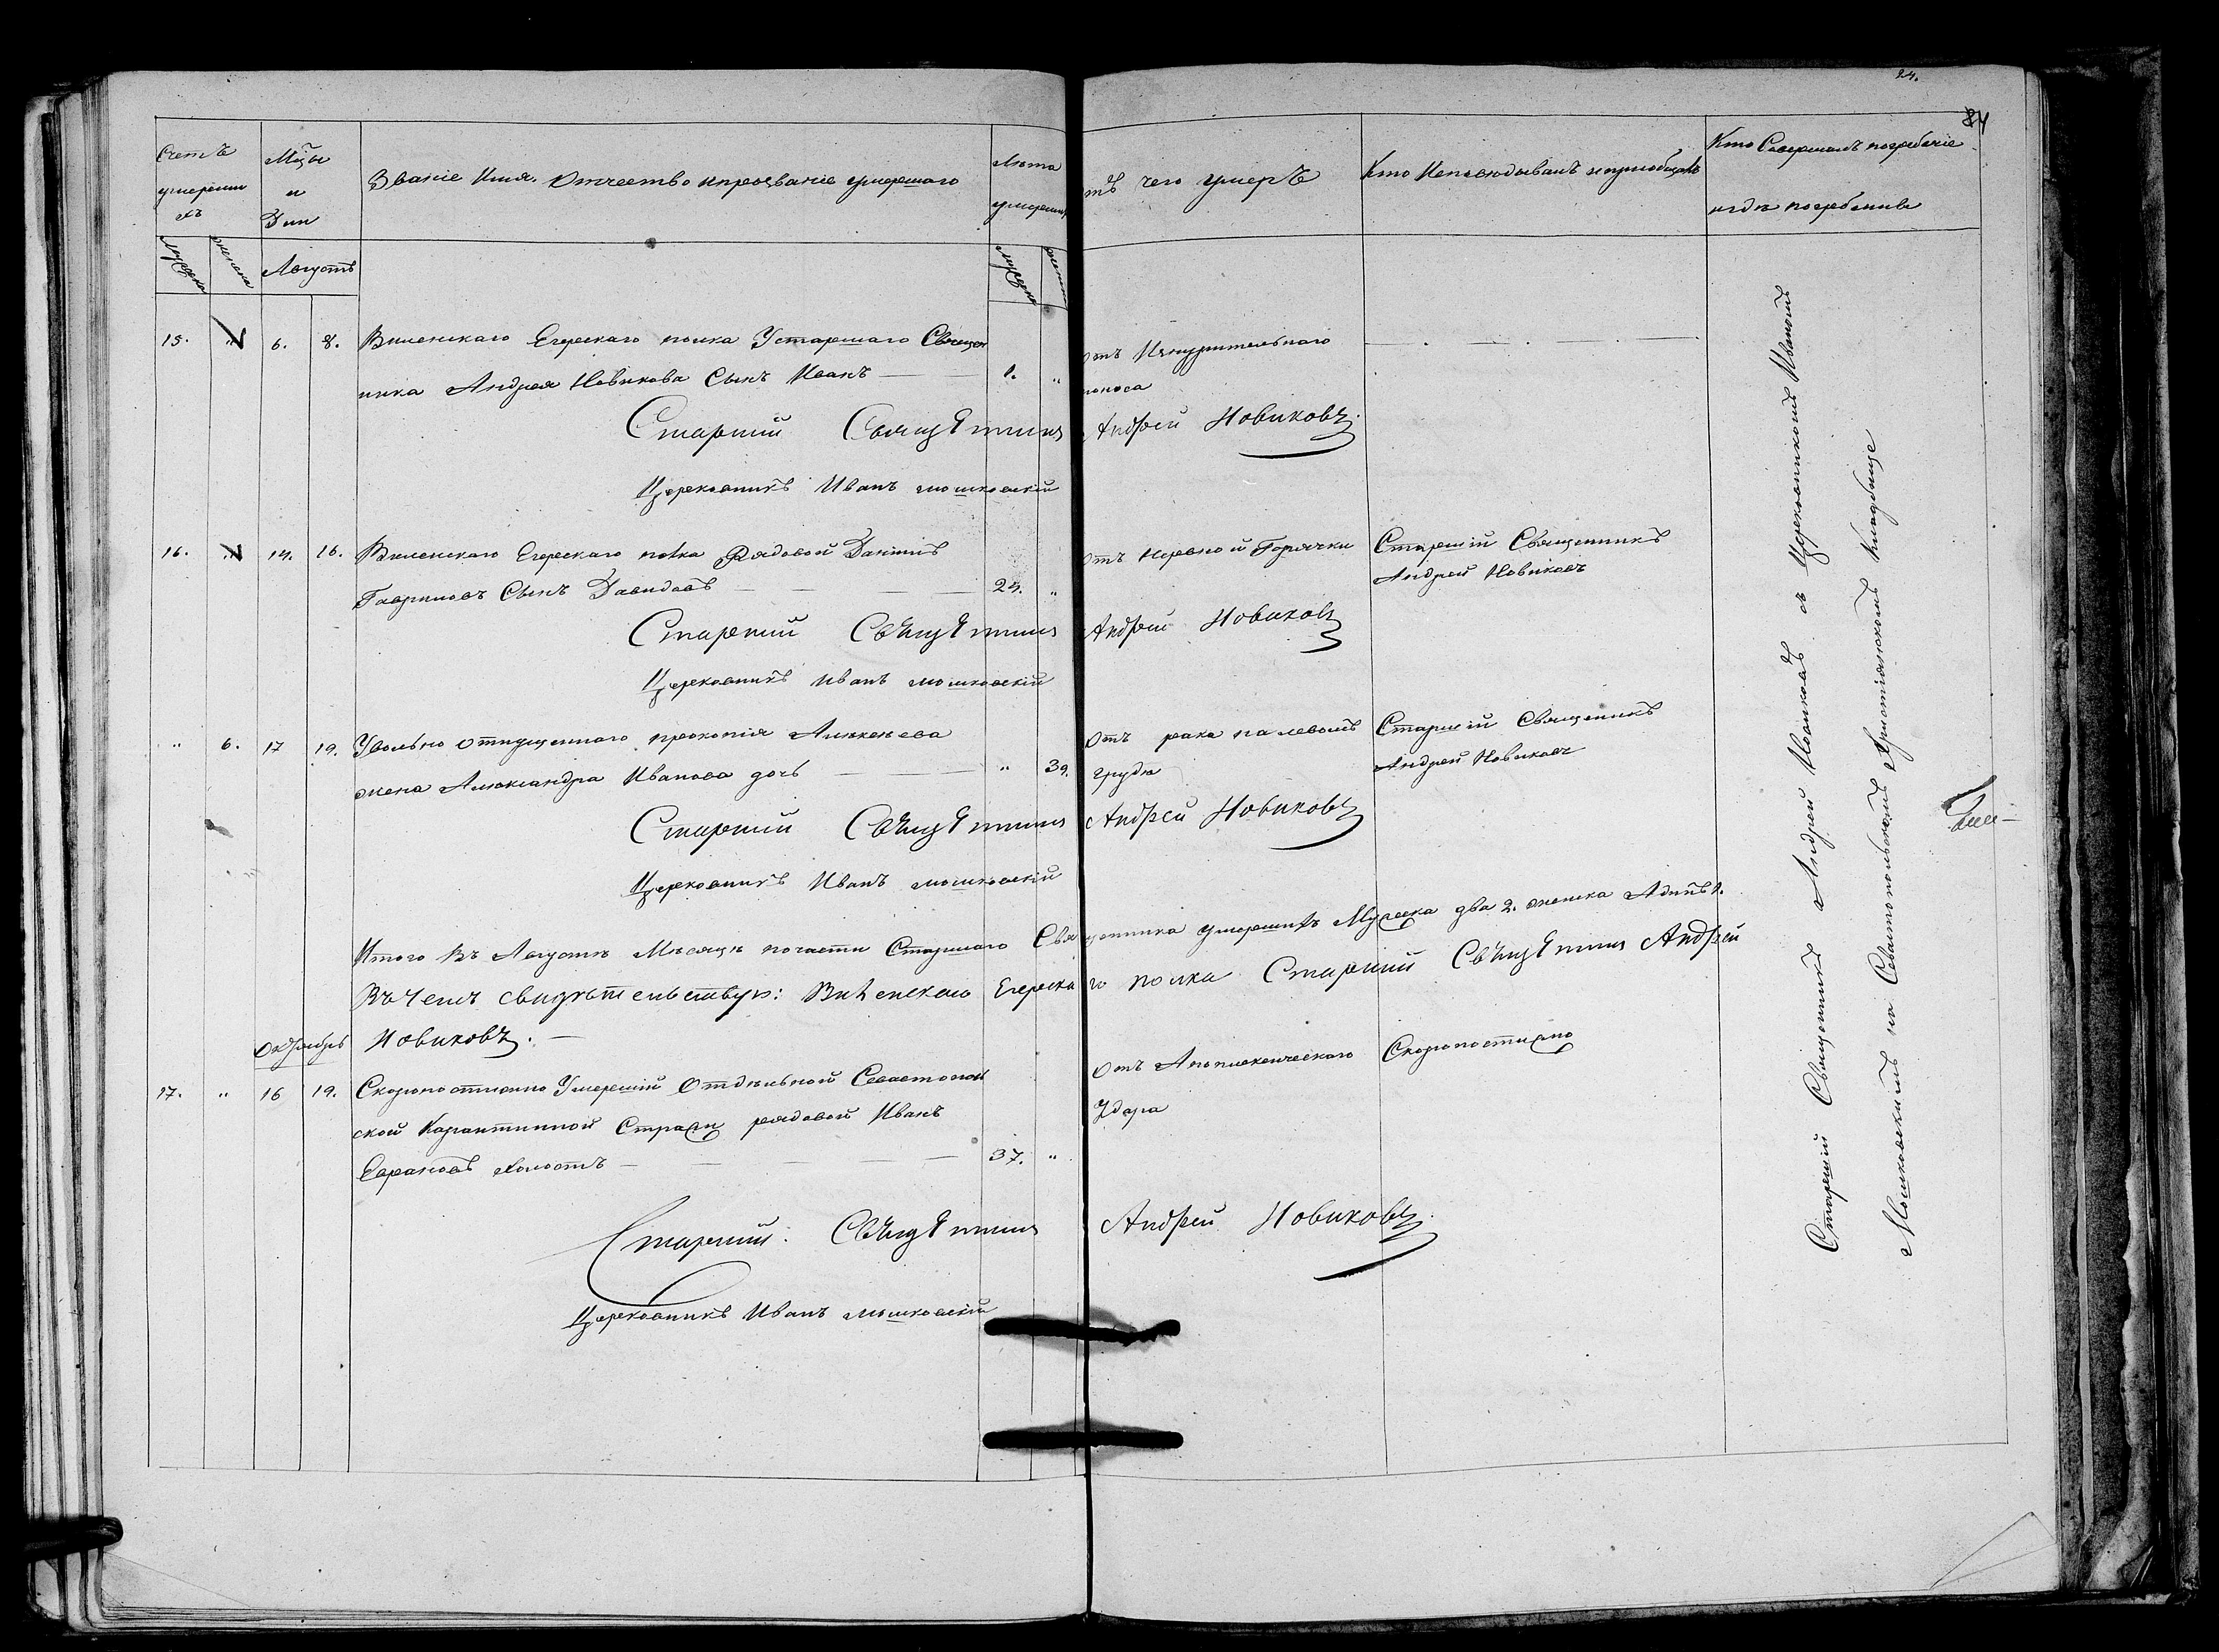 24.
84
Счетъ умершихъ
Мѣсяцы и Дни
Званіе Имя. Отчество и прозваніе умершаго
Лѣта умершихъ
Отъ чего умеръ
Кто Исповѣдывалъ и приобщалъ
Кто Совершалъ погребеніе
и гдѣ погребены
Мужеска
женска
Августъ
Мужеска
женска
15. " 6. 8. Виленскаго Егерскаго полка У старшаго Священ
ника Андрея Новикова Сынъ Иванъ — — 1. "
Отъ Изнурительнаго
поноса
Старший Священникъ Андрей Новиковъ.
Церковникъ Иванъ Мошковскій
16. " 14. 16. Виленскаго Егерскаго полка Рядовой Данiилъ
Гавриловъ Сынъ Давидовъ — — — 24. "
Отъ Нервной Горячки
Старшій Священникъ
Андрей Новиковъ
Старший Священникъ Андрей Новиковъ
Церковникъ Иванъ Мошковскій
" 6. 17 19. Увольно отпущеннаго прокопія Алексеева
жена Александра Иванова дочь — — " 39.
Отъ рака на левомъ
грудѣ
Старшій Священникъ
Андрей Новиковъ
Старший Священникъ Андрей Новиковъ
Церковникъ Иванъ Мошковскій
Итого Въ Августѣ Мѣсяцѣ почасти Старшаго Священника умершихъ Мужеска два 2. женска Адинъ 1.
Въ Чемъ свидѣтельствую: Виленскаго Егерскаго полка Старший Священникъ Андрей
Новиковъ. —
Октябрь
17. " 16 19. Скоропостижно Умершій Отдѣльной Севастополь
ской Карантинной Стражи рядовой Иванъ
холостъ — — — — 37. "
Отъ Апоплексическаго
Удара
Скоропостижно
Старший Священникъ Андрей Новиковъ.
Церковникъ Иванъ Мошковскій
Старшій Священникъ Андрей Новиковъ съ Церковникомъ Иваномъ
Мошковскимъ на Севастопольскомъ Христіянскомъ Кладбище